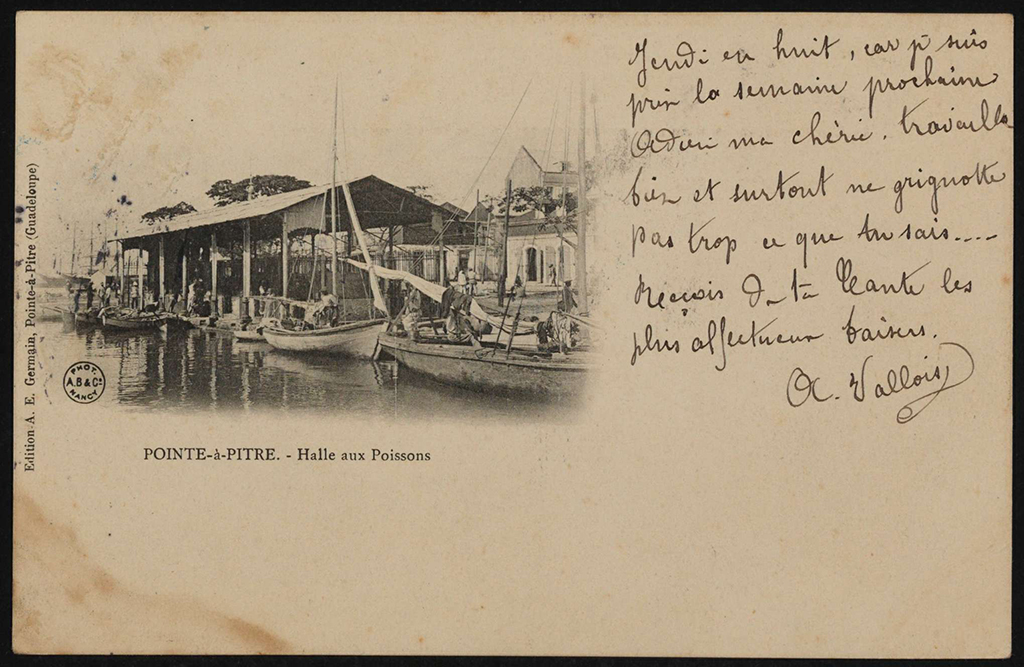 Jeudi en huit, car je suis
prise la semaine prochaine
Adieu ma chérie. travaille
bien et surtout ne grignotte
pas trop ce que tu sais....
Reçois de ta Tante les
plus affectueux baisers.
A. Vallois
Edition A. E. Germain, Pointe-à-Pitre (Guadeloupe)
PHOT.
A.B & Cº
NANCY
POINTE-à-PITRE. - Halle aux Poissons